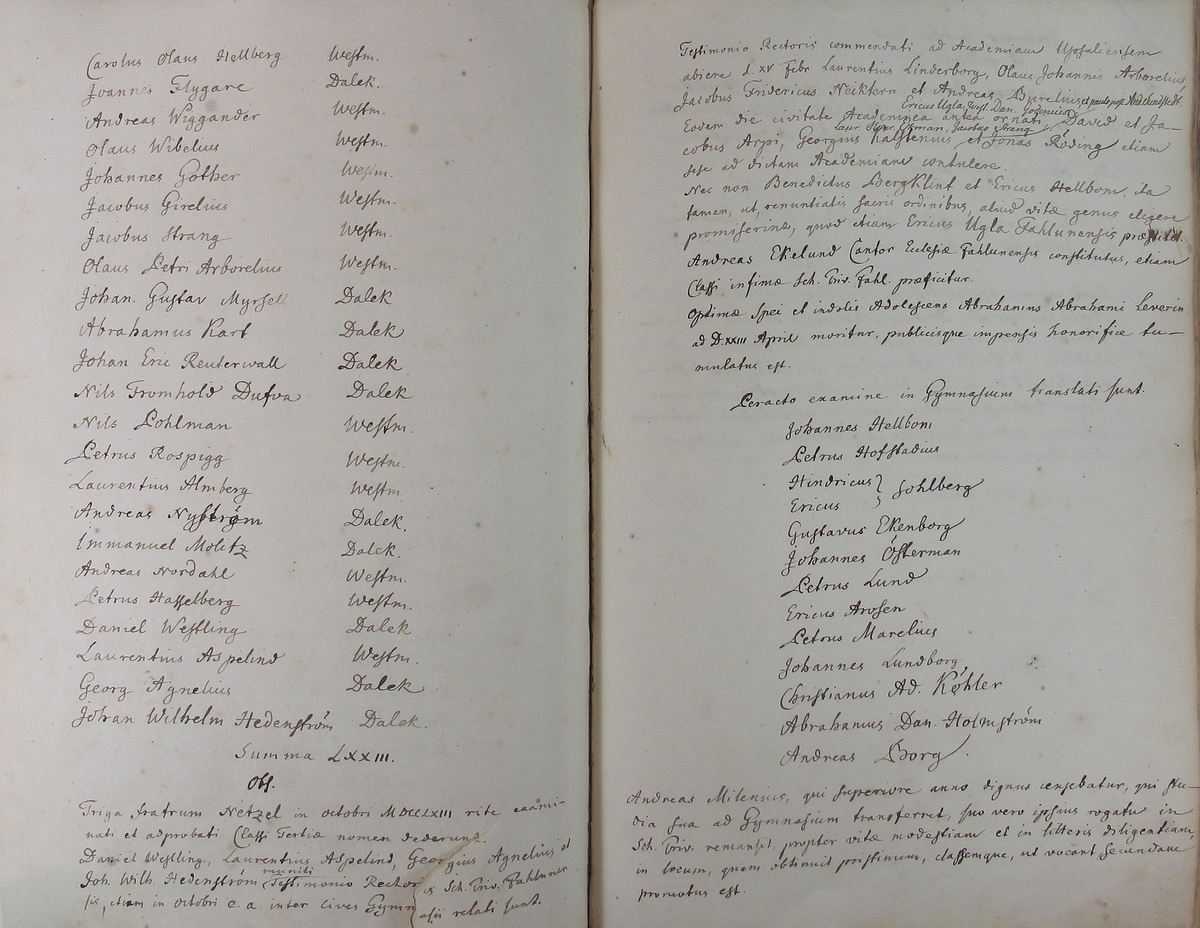 Carolus Olaus Hellberg Westm.
Joannes Flygare Dalek.
Andreas Wiggander Westm.
Olaus Wibelius Westm.
Johannes Göther Westm.
Jacobus Girelius Westm.
Jacobus Strang Westm.
Olaus Petri Arborelius Westm.
Johan. Gustav Myrsell Dalek
Abrahamus Kart Dalek
Johan Eric Reuterwall Dalek
Nils Fromhold Dufva Dalek
Nils Pohlman Westm.
Petrus Rospigg Westm.
Laurentius Almberg Westm.
Andreas Nyström Dalek.
Immanuel Molitz Dalek.
Andreas Nordahl Westm.
Petrus Hasselberg Westm.
Daniel Westling Dalek
Laurentius Aspelind Westm.
Georg Agnelius Dalek
Johan Wilhelm Hedenström Dalek.
Summa LXXIII.
Obs.
Triga fratrum Netzel in octobri MDCCLXIII rite exami-
nati et adprobati Classi Tertiæ nomen dederunt.
Daniel Westling, Laurentius Aspelind, Georgius Agnelius et
muniti
Joh. Wilh. Hedenström Testimonio Rectoris Sch. Triv. Fahlunen
sis, etiam in octobri e. a. inter cives Gymnasii relati sunt.
Testimonio Rectoris commendati ad Academiam Upsaliensem
abiere d. XV Febr Laurentius Linderborg, Olaus Johannis Arborelius,
Jacobus Fridericus Neiktern et Andreas
Ericus Ugla, Dan.
Eodem die civitate Academica antea ornati David et Ja-
Laur. Jacobus Strang
cobus Arpi, Georgius Kalstenius et Jonas Röding etiam
sese ad dictam Academiam contulere.
Nec non Benedictus Bergklint et Ericus Hellbom, ita
tamen, ut, renuntiatis sacris ordinibus, aliud vitæ genus eligere
promiserint, quod etiam Ericus Ugla Fahlunensis præstitit.
Andreas Ekelund Cantor Ecclesiæ Fahlunensis constitutus, etiam
Classi infimæ Sch. Triv. Fahl. præficitur.
Optimæ Spei et indolis Adolescens Abrahamus Abrahami Leverin
ad D. XXIII April moritur, publicisque impensis honorifice tu-
mulatus est.
Peracto examine in Gymnasium translati sunt.
Johannes Hellbom
Petrus Hofstadius
Hindricus } Sohlberg
Ericus
Gustavus Ekenborg
Johannes Österman
Petrus Lund
Ericus Arosen
Petrus Marelius
Johannes Lundborg
Christianus Ad. Köhler
Abrahamus Dan. Holmström
Andreas Borg
Andreas Milenius, qui superiore anno dignus censebatur, qui stu-
dia sua ad Gymnasium transferret, suo vero ipsius rogatu in
Sch. Triv. remansit, propter vitæ modestiam et in litteris diligentiam,
in locum, quem obtinuit pristinum, classemque, ut vocant, secundam
promotus est.